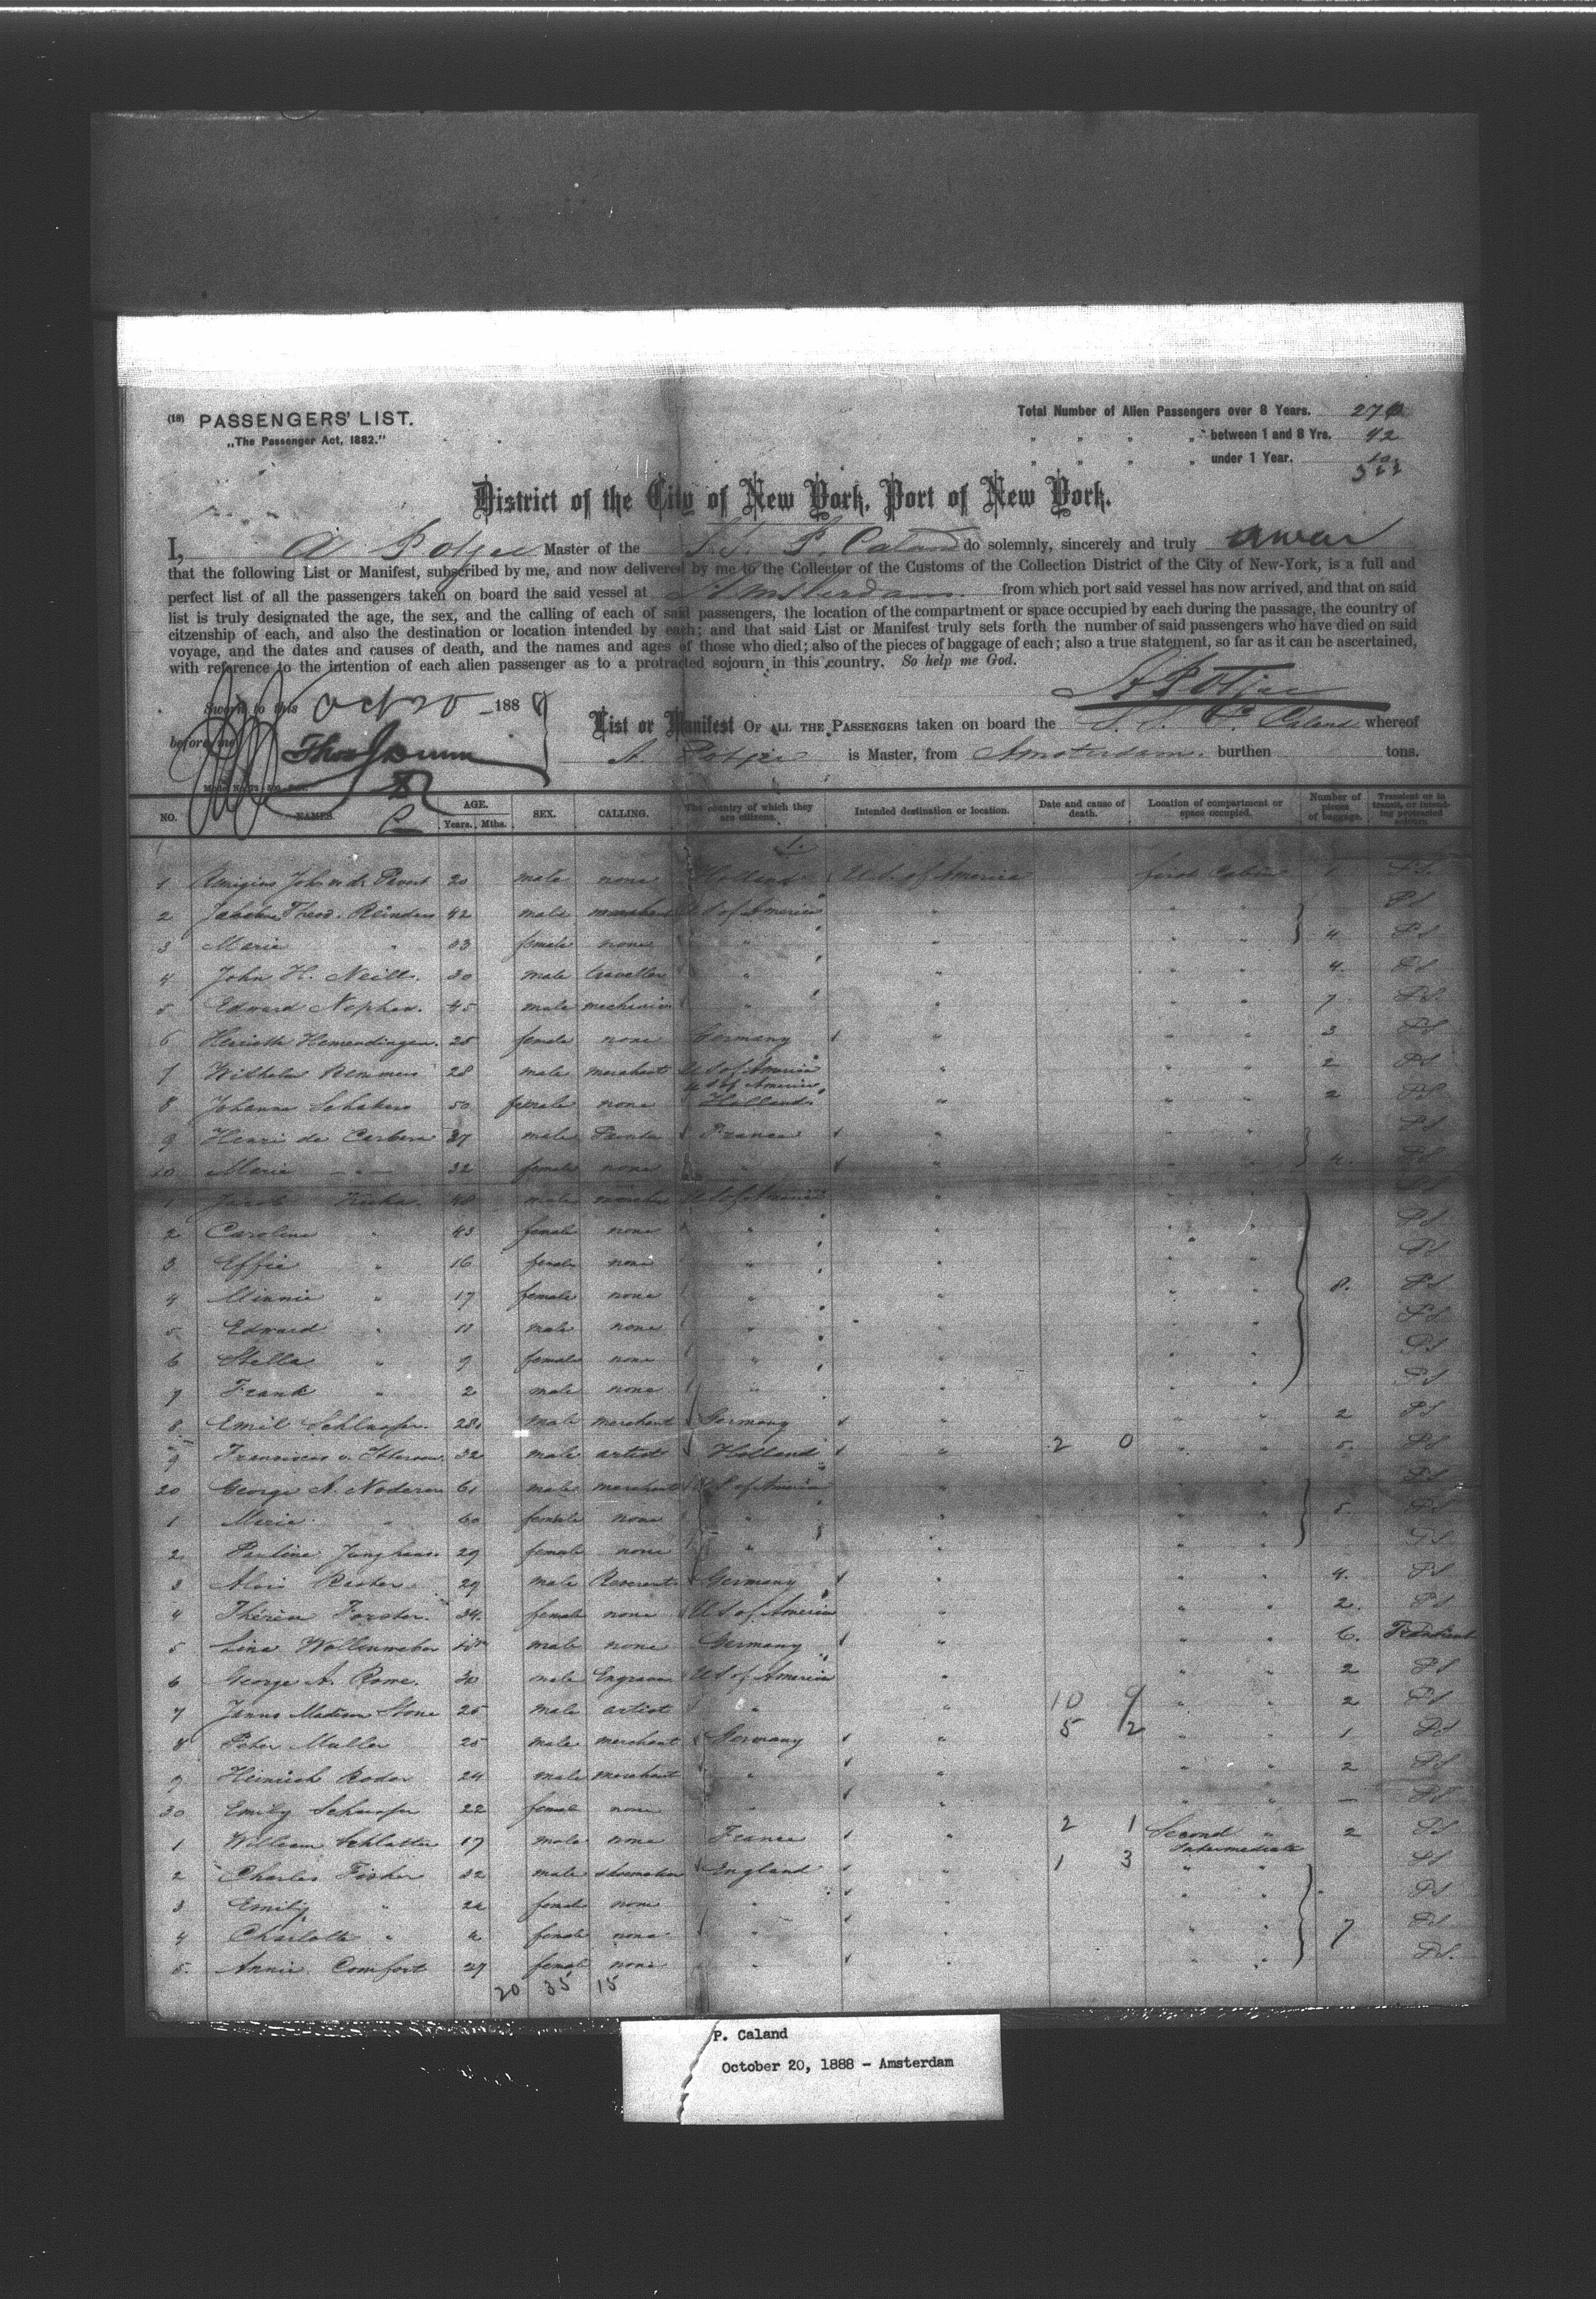 (18) PASSENGERS' LIST.
„The Passenger Act, 1882."
Total Number of Alien Passengers over 8 Years. 270
„ „ „ „ between 1 and 8 Yrs. 42
„ „ „ „ under 1 Year. 10
322
District of the City of New York, Port of New York.
I, A Potjer Master of the S.S. P. Caland do solemnly, sincerely and truly swear
that the following List or Manifest, subscribed by me, and now delivered by me to the Collector of the Customs of the Collection District of the City of New-York, is a full and
perfect list of all the passengers taken on board the said vessel at Amsterdam. from which port said vessel has now arrived, and that on said
list is truly designated the age, the sex, and the calling of each of said passengers, the location of the compartment or space occupied by each during the passage, the country of
citzenship of each, and also the destination or location intended by each; and that said List or Manifest truly sets forth the number of said passengers who have died on said
voyage, and the dates and causes of death, and the names and ages of those who died; also of the pieces of baggage of each; also a true statement, so far as it can be ascertained,
with reference to the intention of each alien passenger as to a protracted sojourn in this country. So help me God.
A Potjer
Sworn to this Oct 20 188 8
before me
List or Manifest OF ALL THE PASSENGERS taken on board the S. S. P. Caland whereof
A. Potjer is Master, from Amsterdam. burthen tons.
NO. NAMES. AGE. Years. Mths. SEX. CALLING. The country of which they are citizens. Intended destination or location. Date and cause of death. Location of compartment or space occupied. Number of pieces of baggage. Transient or in transit, or intending protracted sojourn.
1.
1 20 male none Holland U.S. of America first Cabin 1 P.S.
2 Theod. Reinders 42 male merchant U S of America " " " PS
3 Maria " 33 female none " " " " 4 PS
4 John H. Neill. 30 male traveller " " " " 4. PS
5 Edward Nephen. 45 male mechanician " " " " 7 P.S.
6 25 female none Germany " 3 PS
7 Wilhelm Remmers 28 male merchant U S of America " 2 PS
U S of America
8 Johanna Schakers 50 female none Holland " " " 2 PS
9 Henri de 37 male France " " " PS
10 Marie " 32 female none " " " " 4. PS
1 Jacob 48 male U S of America " " PS
2 Caroline " 43 female none " " " PS
3 Effie " 16 female none " " " PS
4 Minnie " 17 female none " " " 8. PS
5 Edward " 11 male none " " " " PS
6 Stella " 9 female none " " " PS
7 Frank " 2 male none " " " PS
8 Emil 28 male merchant Germany " " " 2 PS
9 32 male artist Holland " 2 0 " " 5. PS
20 George A. 61 male merchant U S of America " PS
1 Maria " 60 female none " " " " 5. PS
2 Pauline Junghans 29 female none " " " " PS
3 Alois 29 male Reverent Germany " " " 4. PS
4 Forster. 34. female none U S of America " " " 2. PS
5 Lina Wollenweber male none Germany " " " 6. Transient
6 George A. Rowe. 30 male Engraver U S of America " " " 2 PS
7 James Madison Stone 25 male artist " " 10 9 " " 2 PS
8 Peter Muller 25 male merchant Germany " 5 /2 " " 1 PS
9 Heinrich Roder 24 male merchant " " " " 2 PS
30 Emily 22 female none " " " " — PS
1 William Schlatter 17 male none France " 2 1 Second " 2 PS
Intermediate
2 Charles Fisher 32 male shoemaker England " 1 3 " " PS
3 Emily " female none " " " " PS
4 Charlotte " female none " " " " 7 PS
5. Annie Comfort 27 female none " " " " PS.
20 35 15
P. Caland
October 20, 1888 - Amsterdam